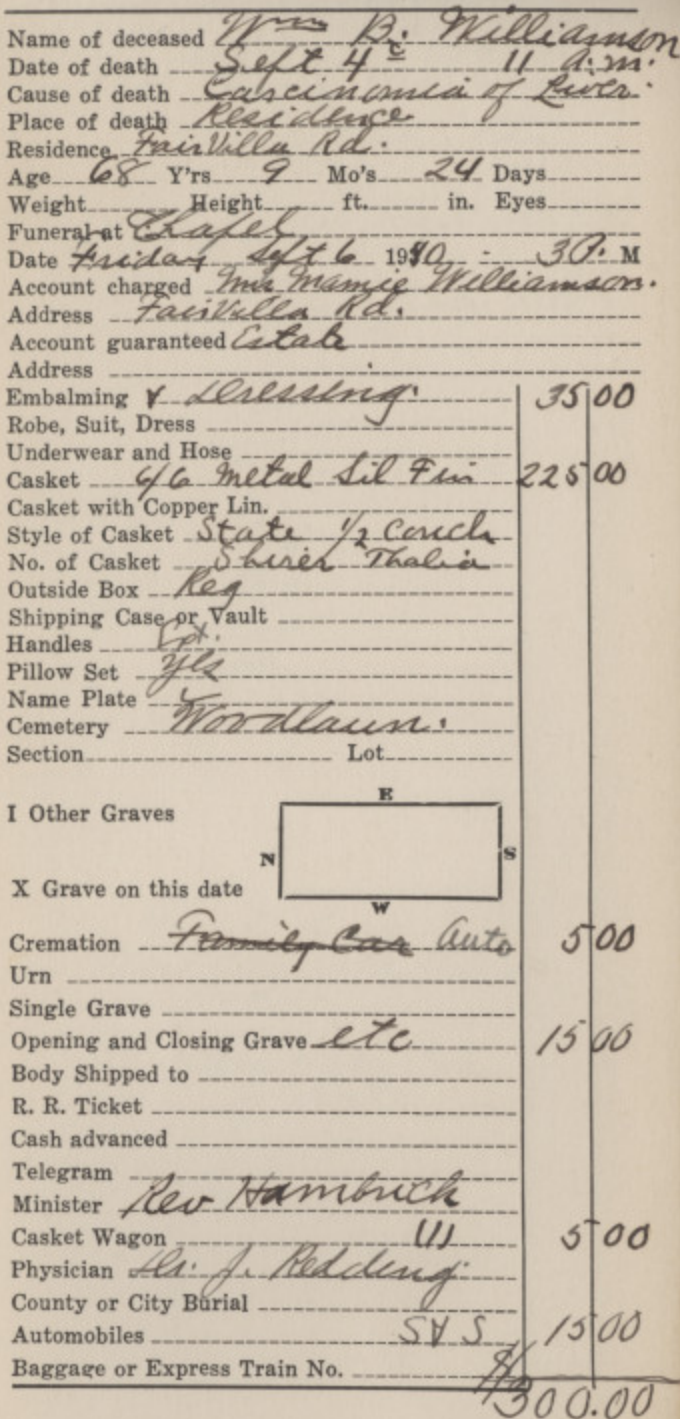 Name of deceased Wm B. Williamson
Date of death Sept 4th 11 a.m.
Cause of death Carcinomia of Liver
Place of death Residence
Residence FairVilla Rd.
Age 68 Y'rs 9 Mo's 24 Days
Weight Height ft. in. Eyes
Funeral at Chapel
Date Friday Sept 6 1940 - 3 P. M
Account charged Mrs Mamie Williamson.
Address FairVilla Rd.
Account guaranteed Estate
Address
Embalming & Dressing. 35 00
Robe, Suit, Dress
Underwear and Hose
Casket 6/6 Metal Sil Fin 225 00
Casket with Copper Lin.
Style of Casket State 1/2 Couch
No. of Casket Shirer Thalia
Outside Box Reg
Shipping Case or Vault
Handles Ext.
Pillow Set Yes
Name Plate
Cemetery Woodlawn.
Section Lot
E
I Other Graves
N S
X Grave on this date
W
Cremation Family Car Auto 5 00
Urn
Single Grave
Opening and Closing Grave etc 15 00
Body Shipped to
R. R. Ticket
Cash advanced
Telegram
Minister Rev Hambrick
Casket Wagon 5 00
Physician Dr. J. Redding
County or City Burial
Automobiles S & S 15 00
Baggage or Express Train No.
300.00